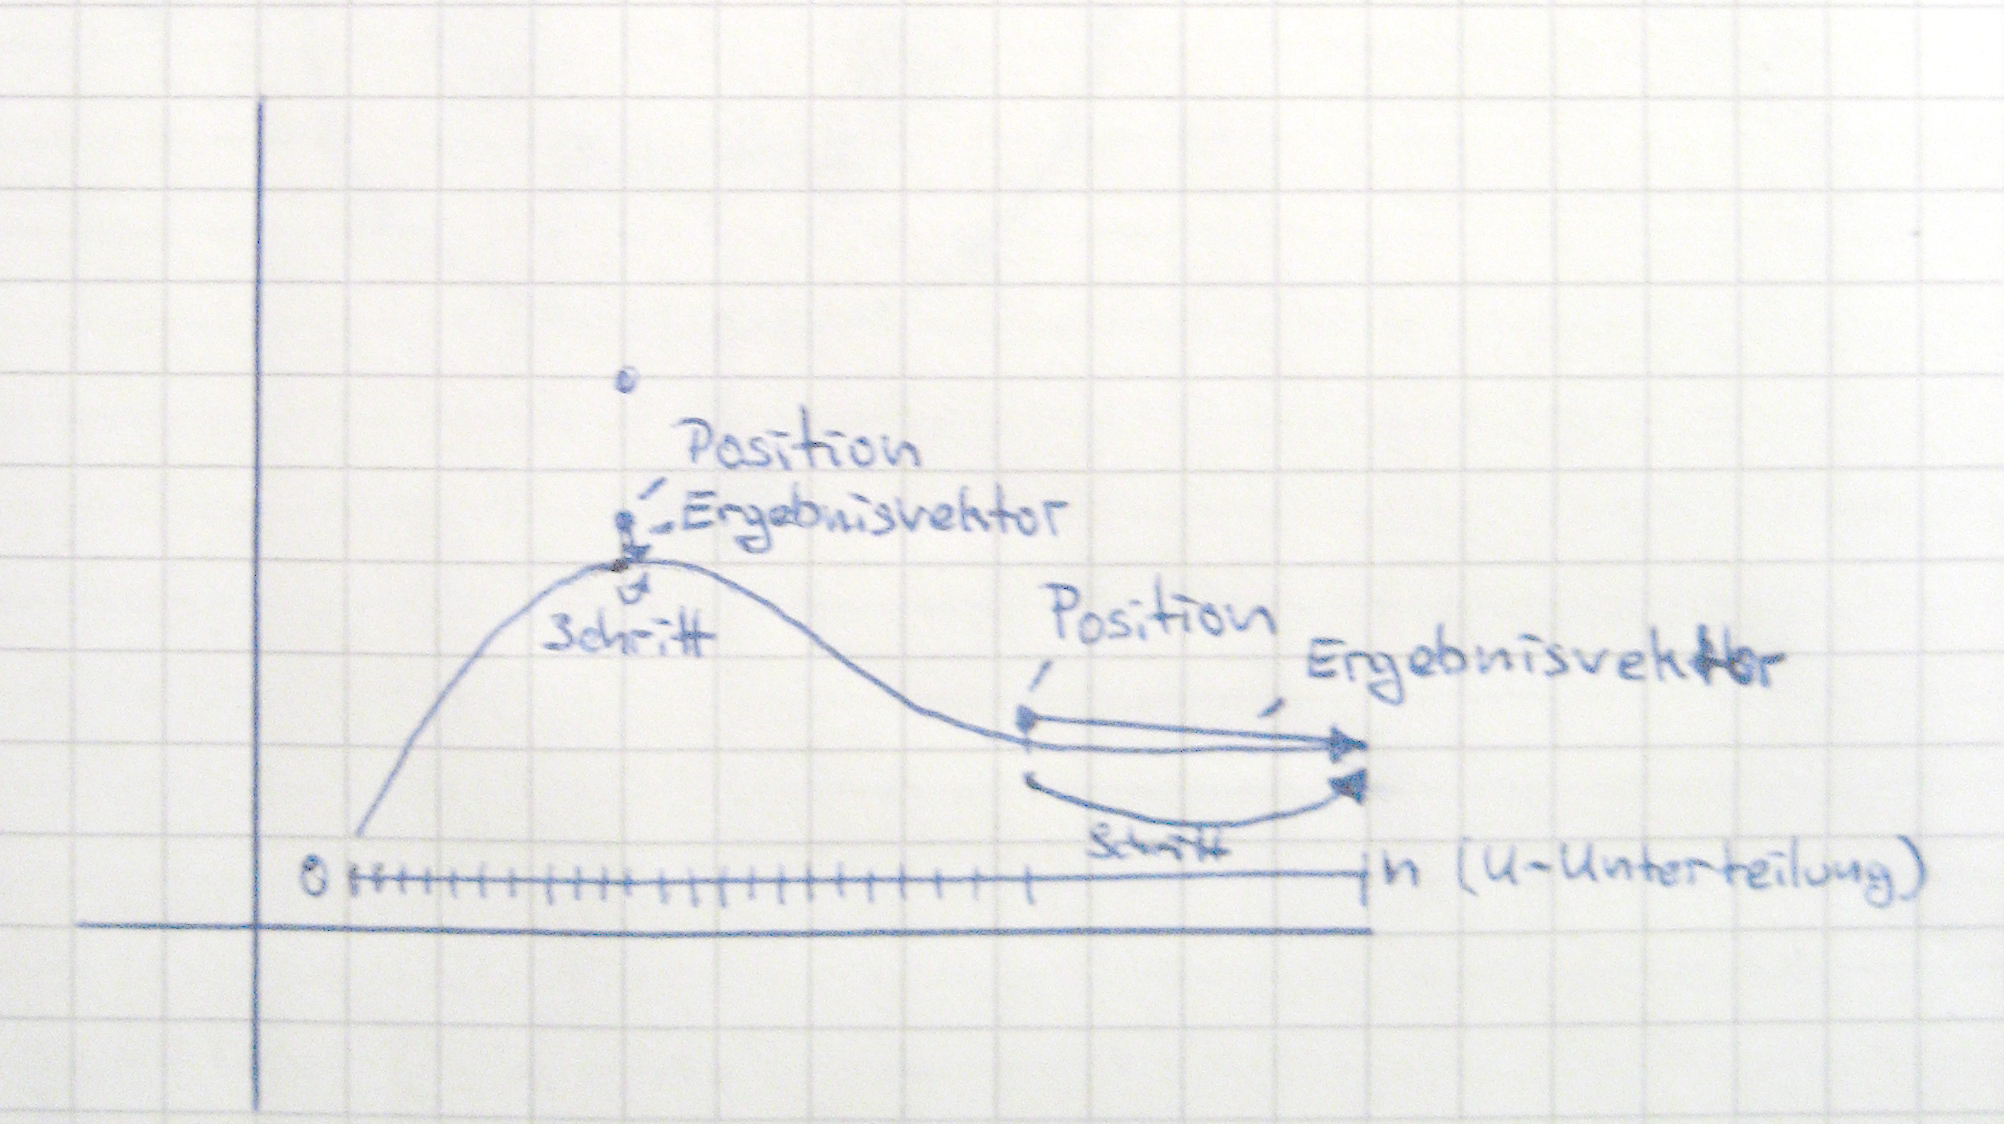 Position
Ergebnisvektor
Schritt
Position
Ergebnisvektor
Schritt
0
n (U-Unterteilung)